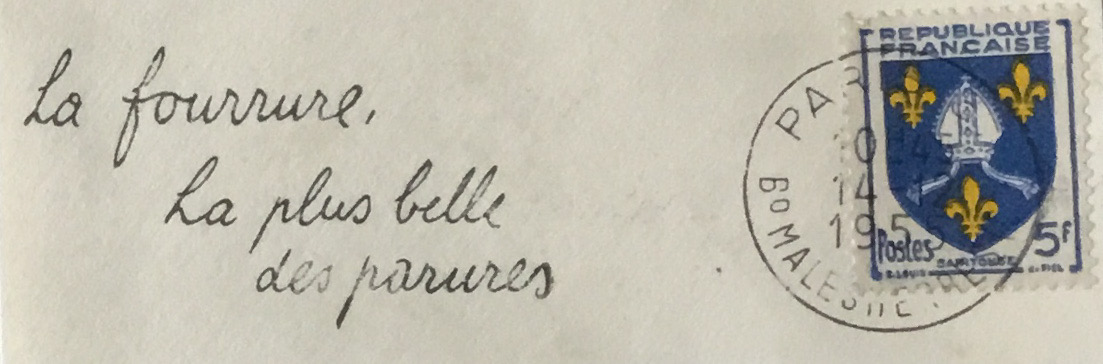 La fourrure,
La plus belle
des parures
REPUBLIQUE
FRANÇAISE
Postes
5F
PAR
14
1955
Bᴰ MALESHERBES